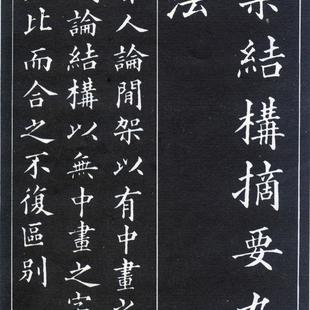 結構摘要九
法
人論閒架以有中畫
論結構以無中畫之字
比而合之不復區別